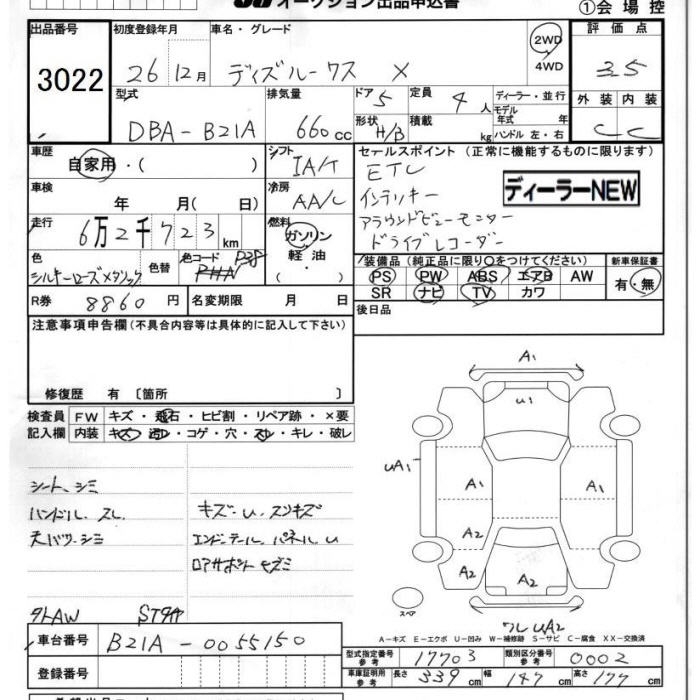 オークション出品申込書
①会場控
出品番号 初度登録年月 車名・グレード 評価点
3022 26 12月 デイズルークス X 2WD 4WD 3.5
型式 排気量 ドア 5 定員 4人 ディーラー・並行 外装 内装
モデル年式 年
DBA-B21A 660cc 形状 H/B 積載 kg ハンドル 左・右 C C
車歴 自家用・( ) シフト IA/T セールスポイント (正常に機能するものに限ります)
ETC
車検 年 月( 日) 冷房 AA/C インテリキー
ディーラーNEW
アラウンドビューモニター
走行 6万2千723km 燃料 ガソリン・軽油・( ) ドライブレコーダー
色 シルキーローズメタリック 色替 色コード PHN 装備品 (純正品に限り○をつけてください) 新車保証書
PS PW ABS エアB AW 有・無
SR ナビ TV カワ
R券 8860円 名変期限 月 日 後日品
注意事項申告欄(不具合内容等は具体的に記入して下さい)
修復歴 有 〔箇所 〕
検査員 FW キズ・飛石・ヒビ割・リペア跡・×要
記入欄 内装 キズ・汚れ・コゲ・穴・スレ・キレ・破レ
シート、シミ
ハンドル、スレ キズ・U、スリキズ
天バリ・シミ エンドーテール、パネルU
ロアサポートキズミ
タトAW STタヤ
A1
U1
UA1 A1 A1
A2
A2 A2
スペア
フレUA2
A-キズ E-エクボ U-凹み W-補修跡 S-サビ C-腐食 XX-交換済
車台番号 B21A-0055150
型式指定番号 参考 17703 類別区分番号 参考 0002
登録番号
車庫証明用 参考 長さ 339cm 幅 147cm 高さ 177cm